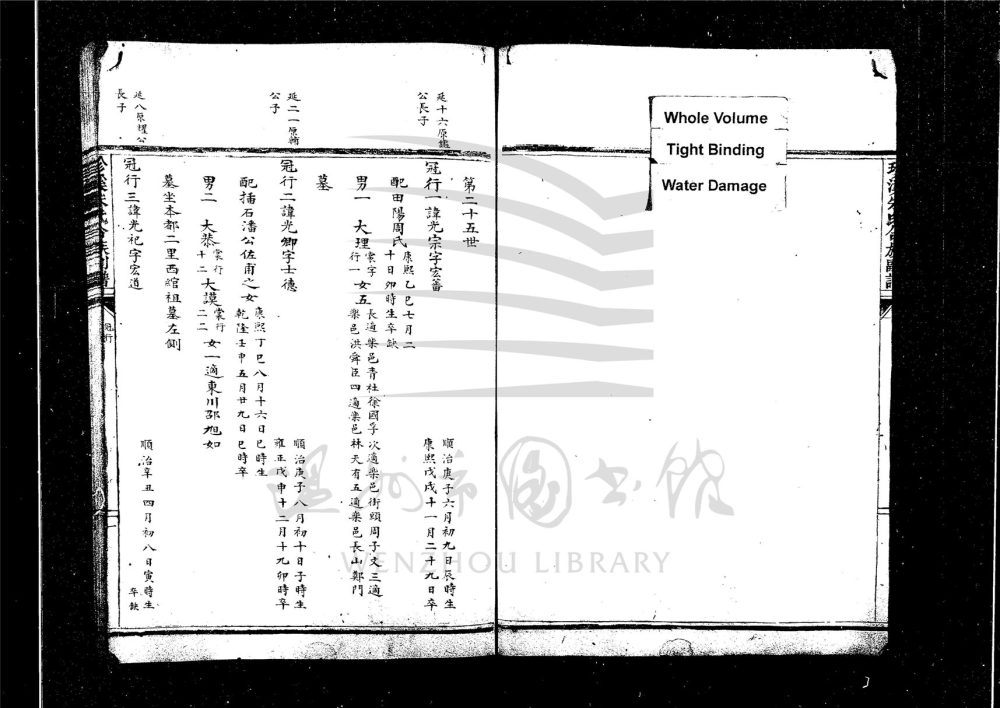 Whole Volume
Tight Binding
Water Damage
第二十五世
延十六原鑑
公長子
冠行一諱光宗字宏蕃
順治庚子六月初九日辰時生
康熙戊戌十一月二十九日卒
配田陽周氏
康熙乙巳七月二
十日卯時生卒缺
男一 大理
棠字
行一
女五
長適樂邑青社徐國孚次適樂邑街頭周子文三適
樂邑洪舜臣四適樂邑林天有五適樂邑長山鄭門
墓
延二一原輔
公子
冠行二諱光卿字士德
順治庚子八月初十日子時生
雍正戊申十二月十九卯時卒
配插石潘公佐甫之女
康熙丁巳八月十六日巳時生
乾隆壬申五月廿九日巳時卒
男二 大恭
棠行
十二
大謨
棠行
二二
女一適東川邵旭如
墓坐本都二里西綰祖墓左側
延八原櫂公
長子
冠行三諱光祀字宏道
順治辛丑四月初八日寅時生
卒缺
冠行
溫州市圖書館
WENZHOU LIBRARY